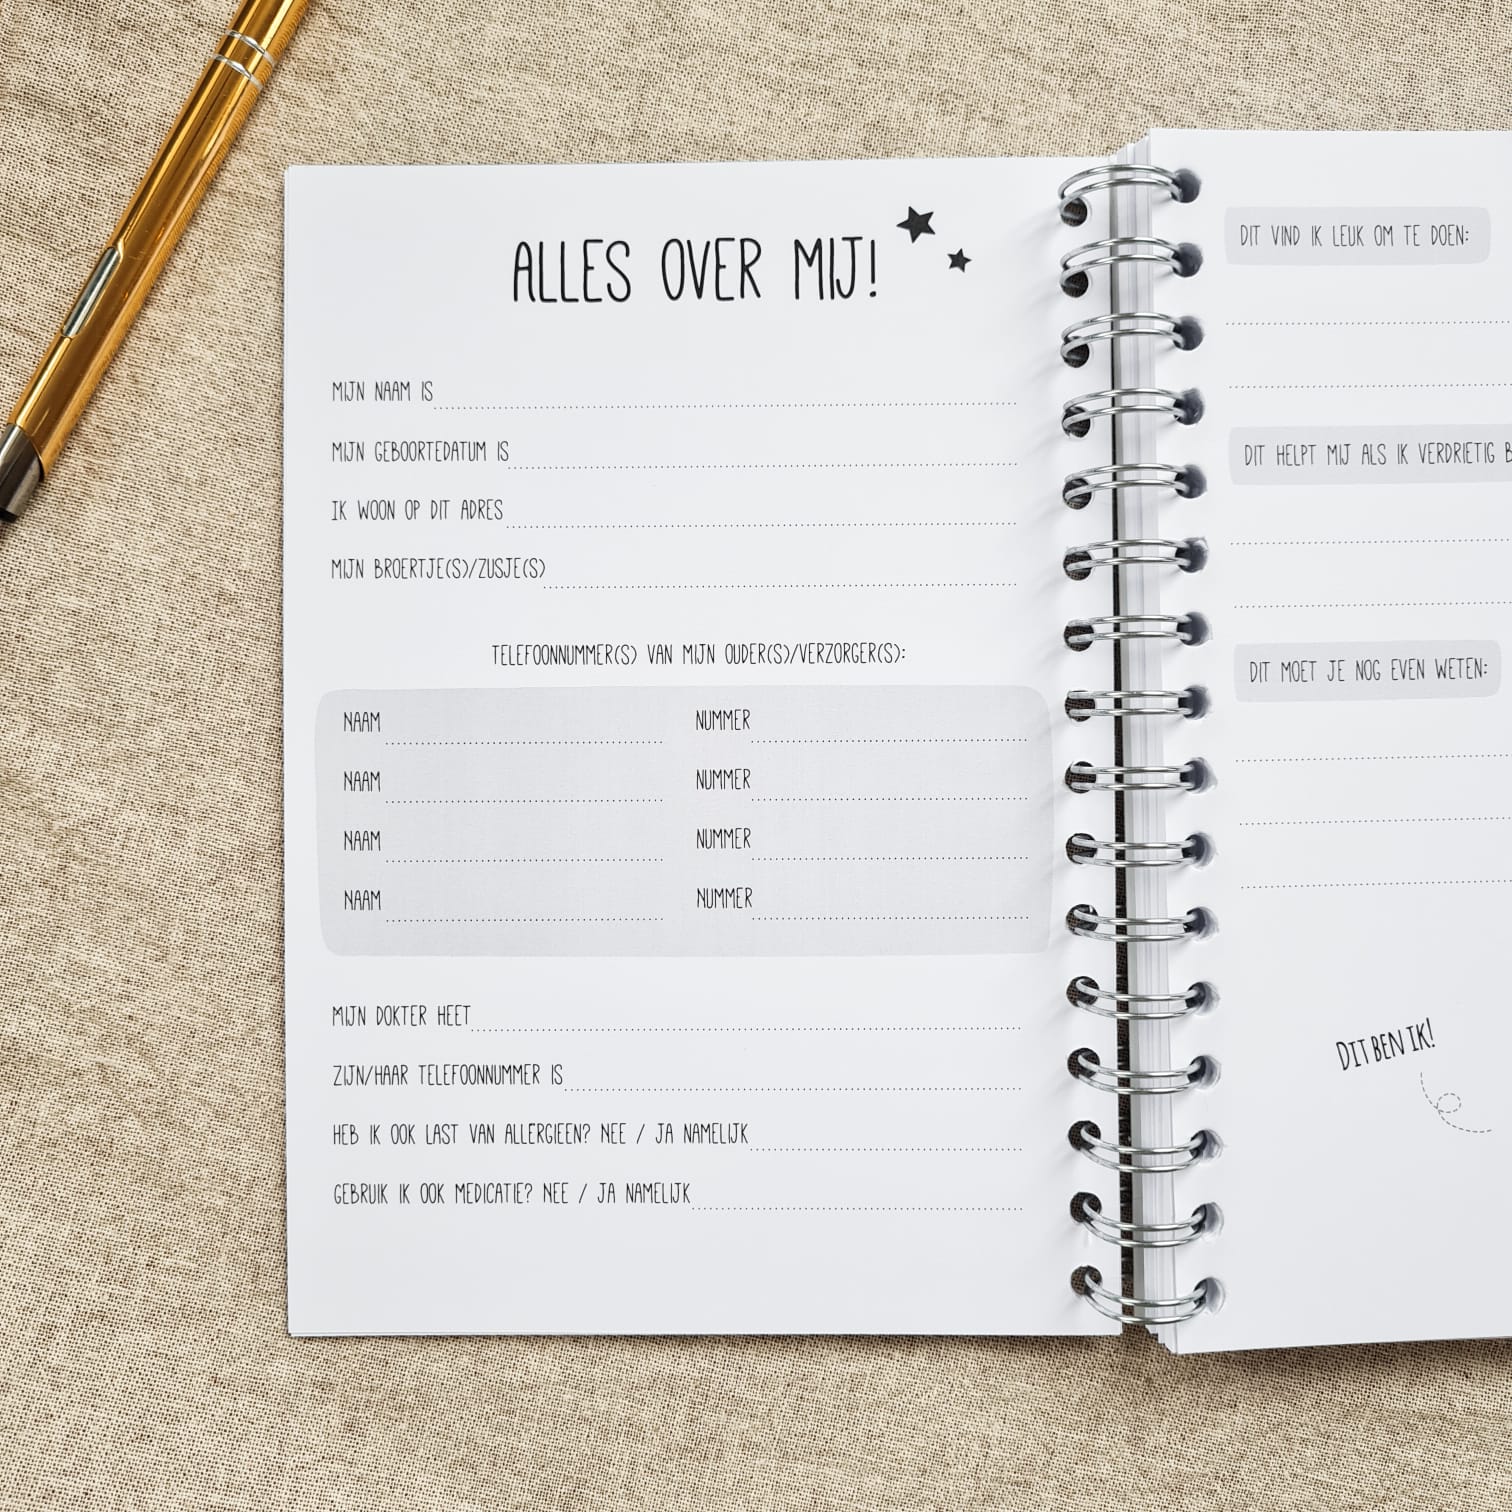 ALLES OVER MIJ!
MIJN NAAM IS
MIJN GEBOORTEDATUM IS
IK WOON OP DIT ADRES
MIJN BROERTJE(S)/ZUSJE(S)
TELEFOONNUMMER(S) VAN MIJN OUDER(S)/VERZORGER(S):
NAAM NUMMER
NAAM NUMMER
NAAM NUMMER
NAAM NUMMER
MIJN DOKTER HEET
ZIJN/HAAR TELEFOONNUMMER IS
HEB IK OOK LAST VAN ALLERGIEEN? NEE / JA NAMELIJK
GEBRUIK IK OOK MEDICATIE? NEE / JA NAMELIJK
DIT VIND IK LEUK OM TE DOEN:
DIT HELPT MIJ ALS IK VERDRIETIG
DIT MOET JE NOG EVEN WETEN:
DIT BEN IK!